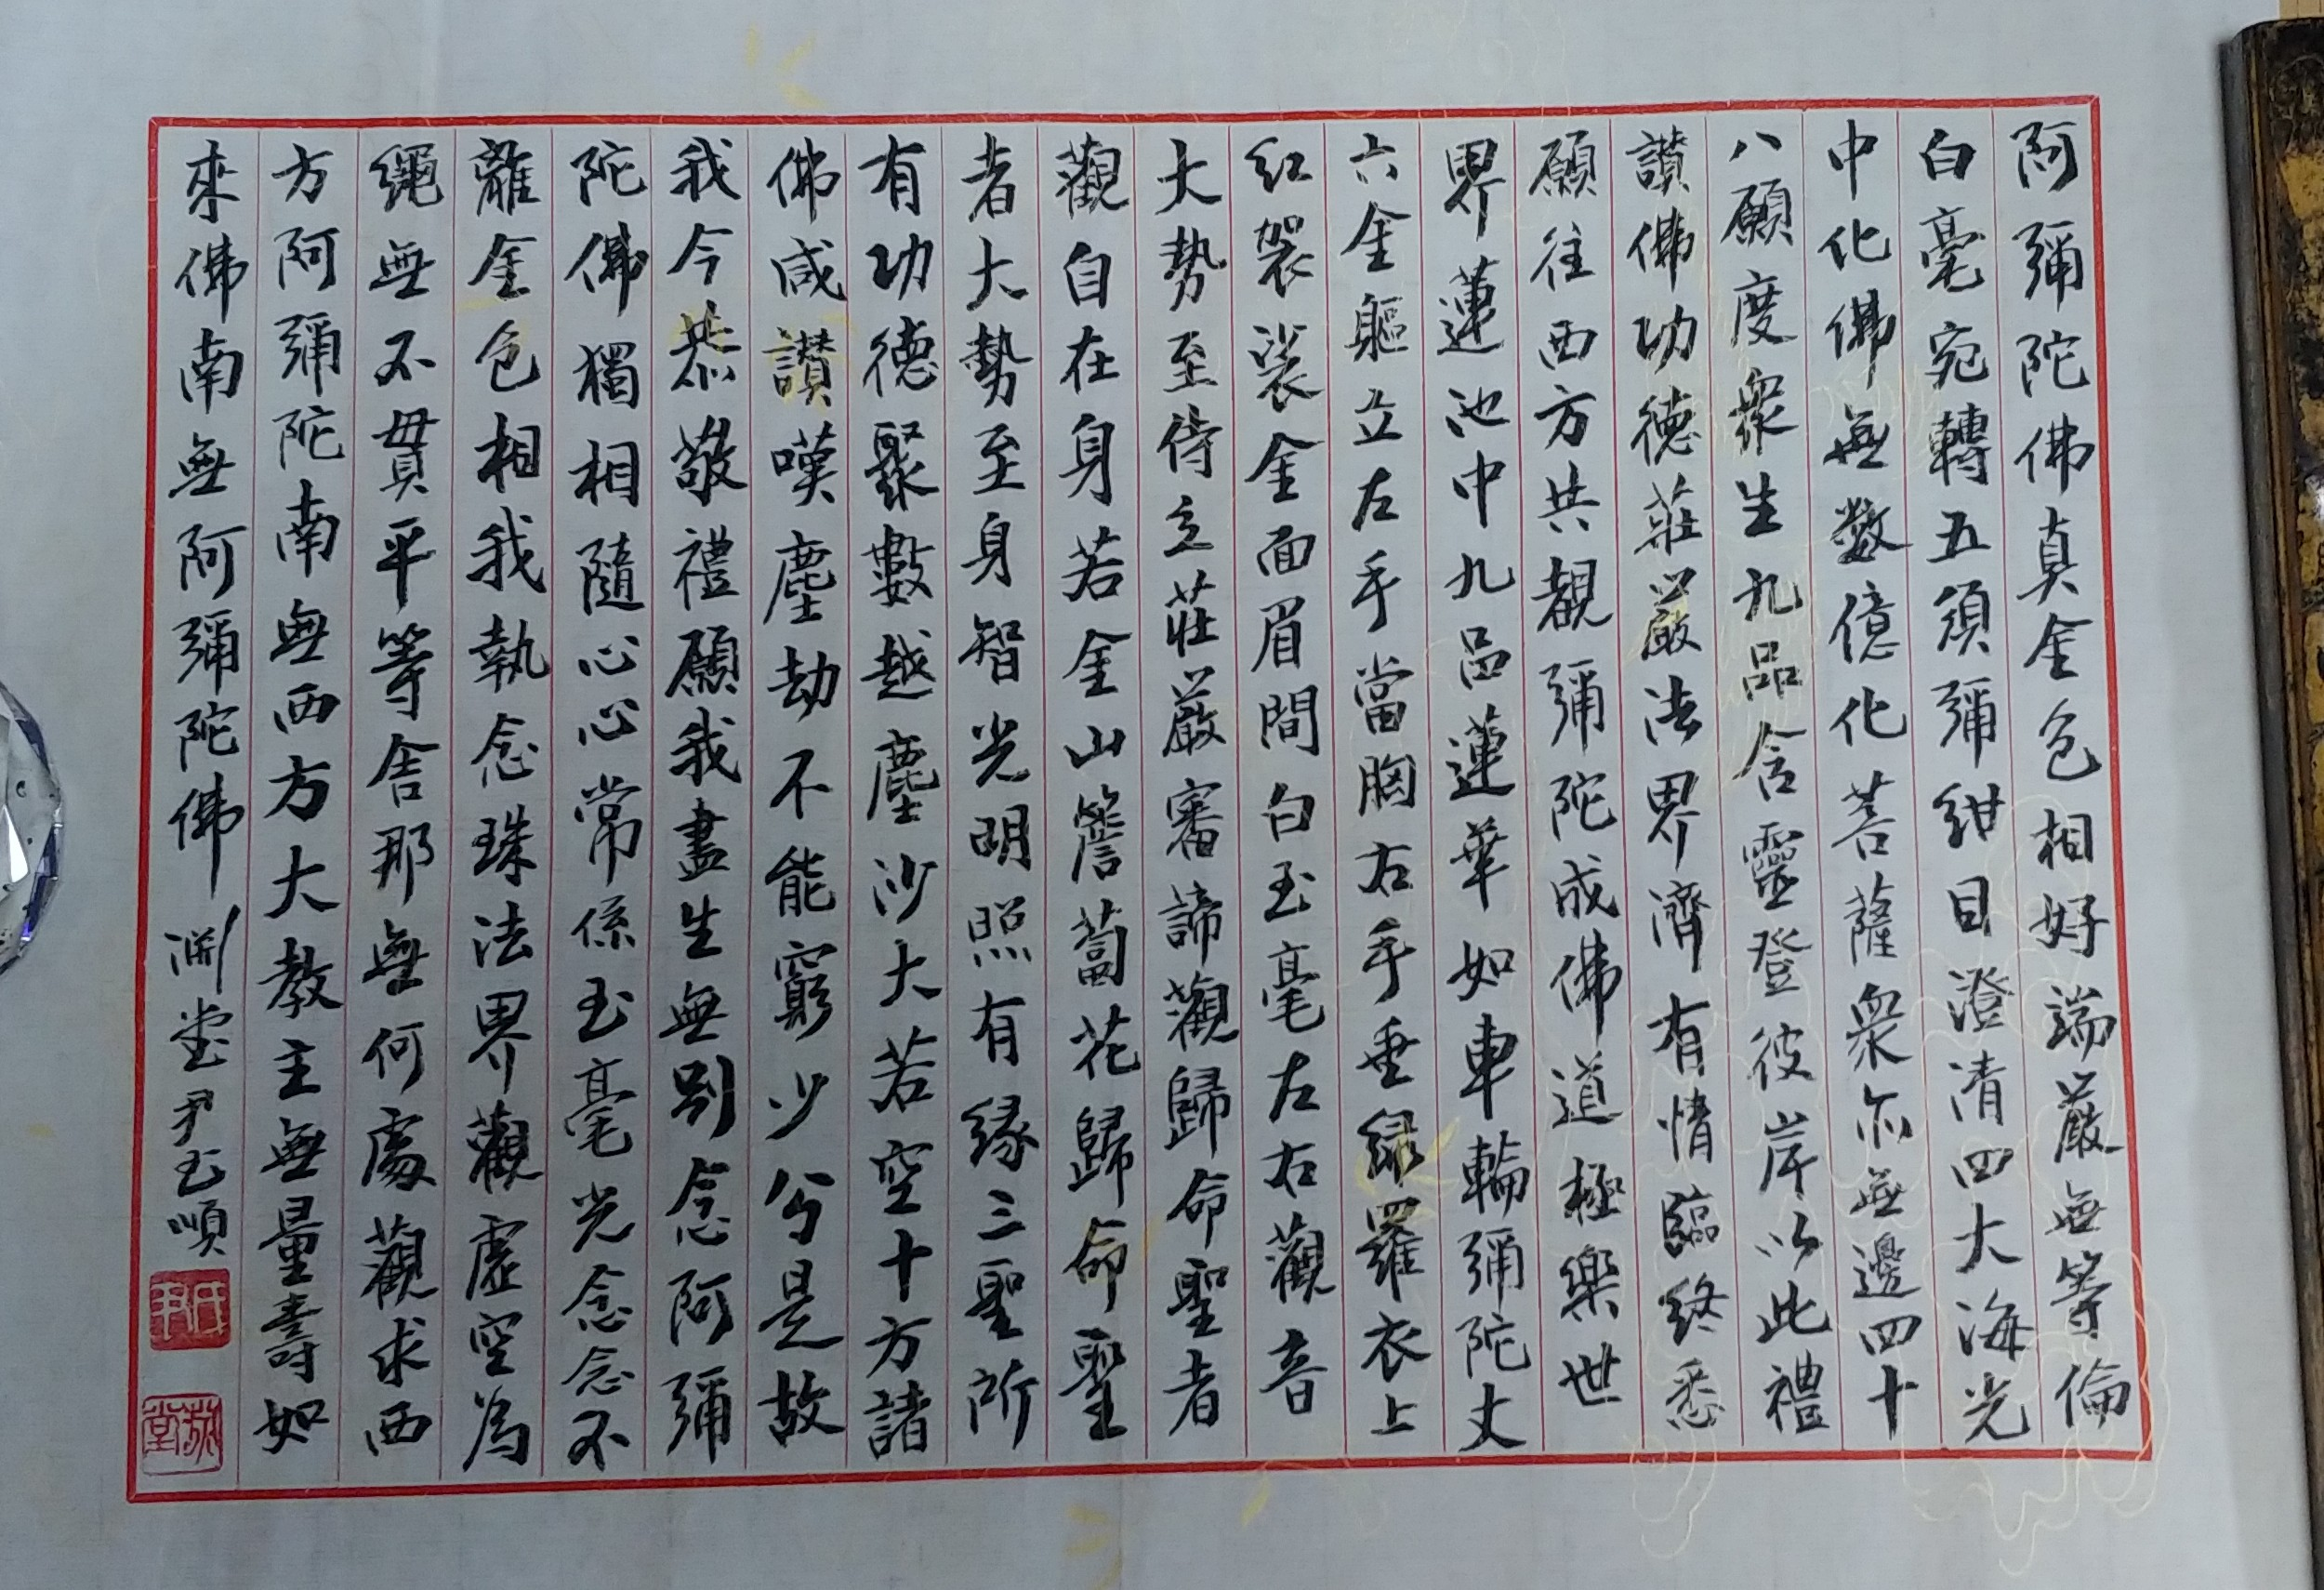 阿彌陀佛真金色相好端嚴無等倫
白毫宛轉五須彌紺目澄清四大海光
中化佛無数億化菩薩衆亦無邊四十
八願度衆生九品含靈登彼岸以此禮
讃佛功德莊嚴法界濟有情臨終悉
願往西方共覩彌陀成佛道極樂世
界蓮池中九品蓮華如車輪彌陀丈
六金軀立左手當胸右手垂緑羅衣上
紅袈裟金面眉間白玉毫左右觀音
大勢至侍立莊嚴審諦觀歸命聖者
觀自在身若金山簷蔔花歸命聖
者大勢至身智光明照有缘三聖所
有功德聚數越塵沙大若空十方諸
佛咸讃嘆塵劫不能窮少兮是故
我今恭敬禮願我盡生無別念阿彌
陀佛獨相隨心心常係玉毫光念念不
離金色相我執念珠法界觀虛空為
繩無不貫平等舎那無何處觀求西
方阿彌陀南無西方大教主無量壽如
來佛南無阿彌陀佛 淵堂尹玉順
尹氏
堂